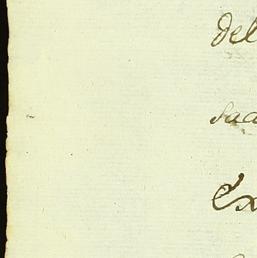 del
saa
Ex